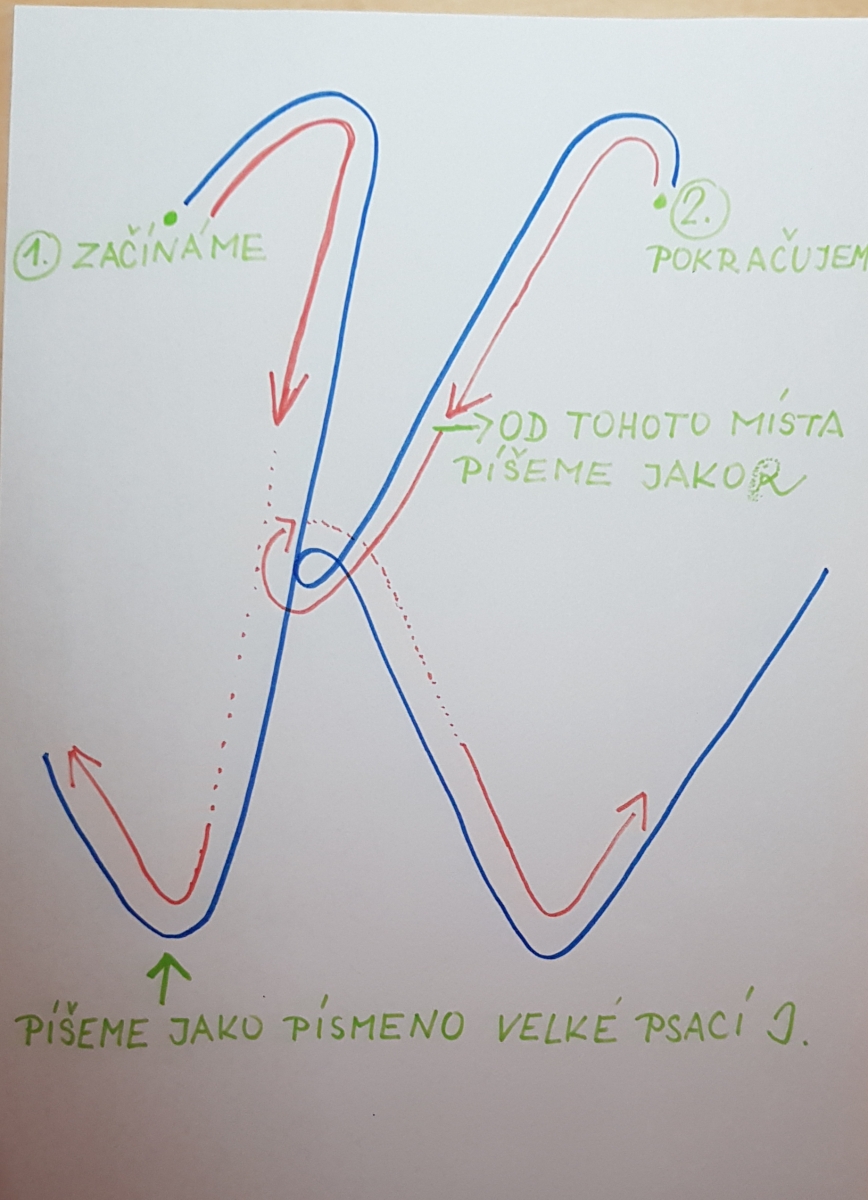 1. ZAČÍNÁME
2.
POKRAČUJEM
→OD TOHOTO MÍSTA
PÍŠEME JAKO R
PÍŠEME JAKO PÍSMENO VELKÉ PSACÍ J.